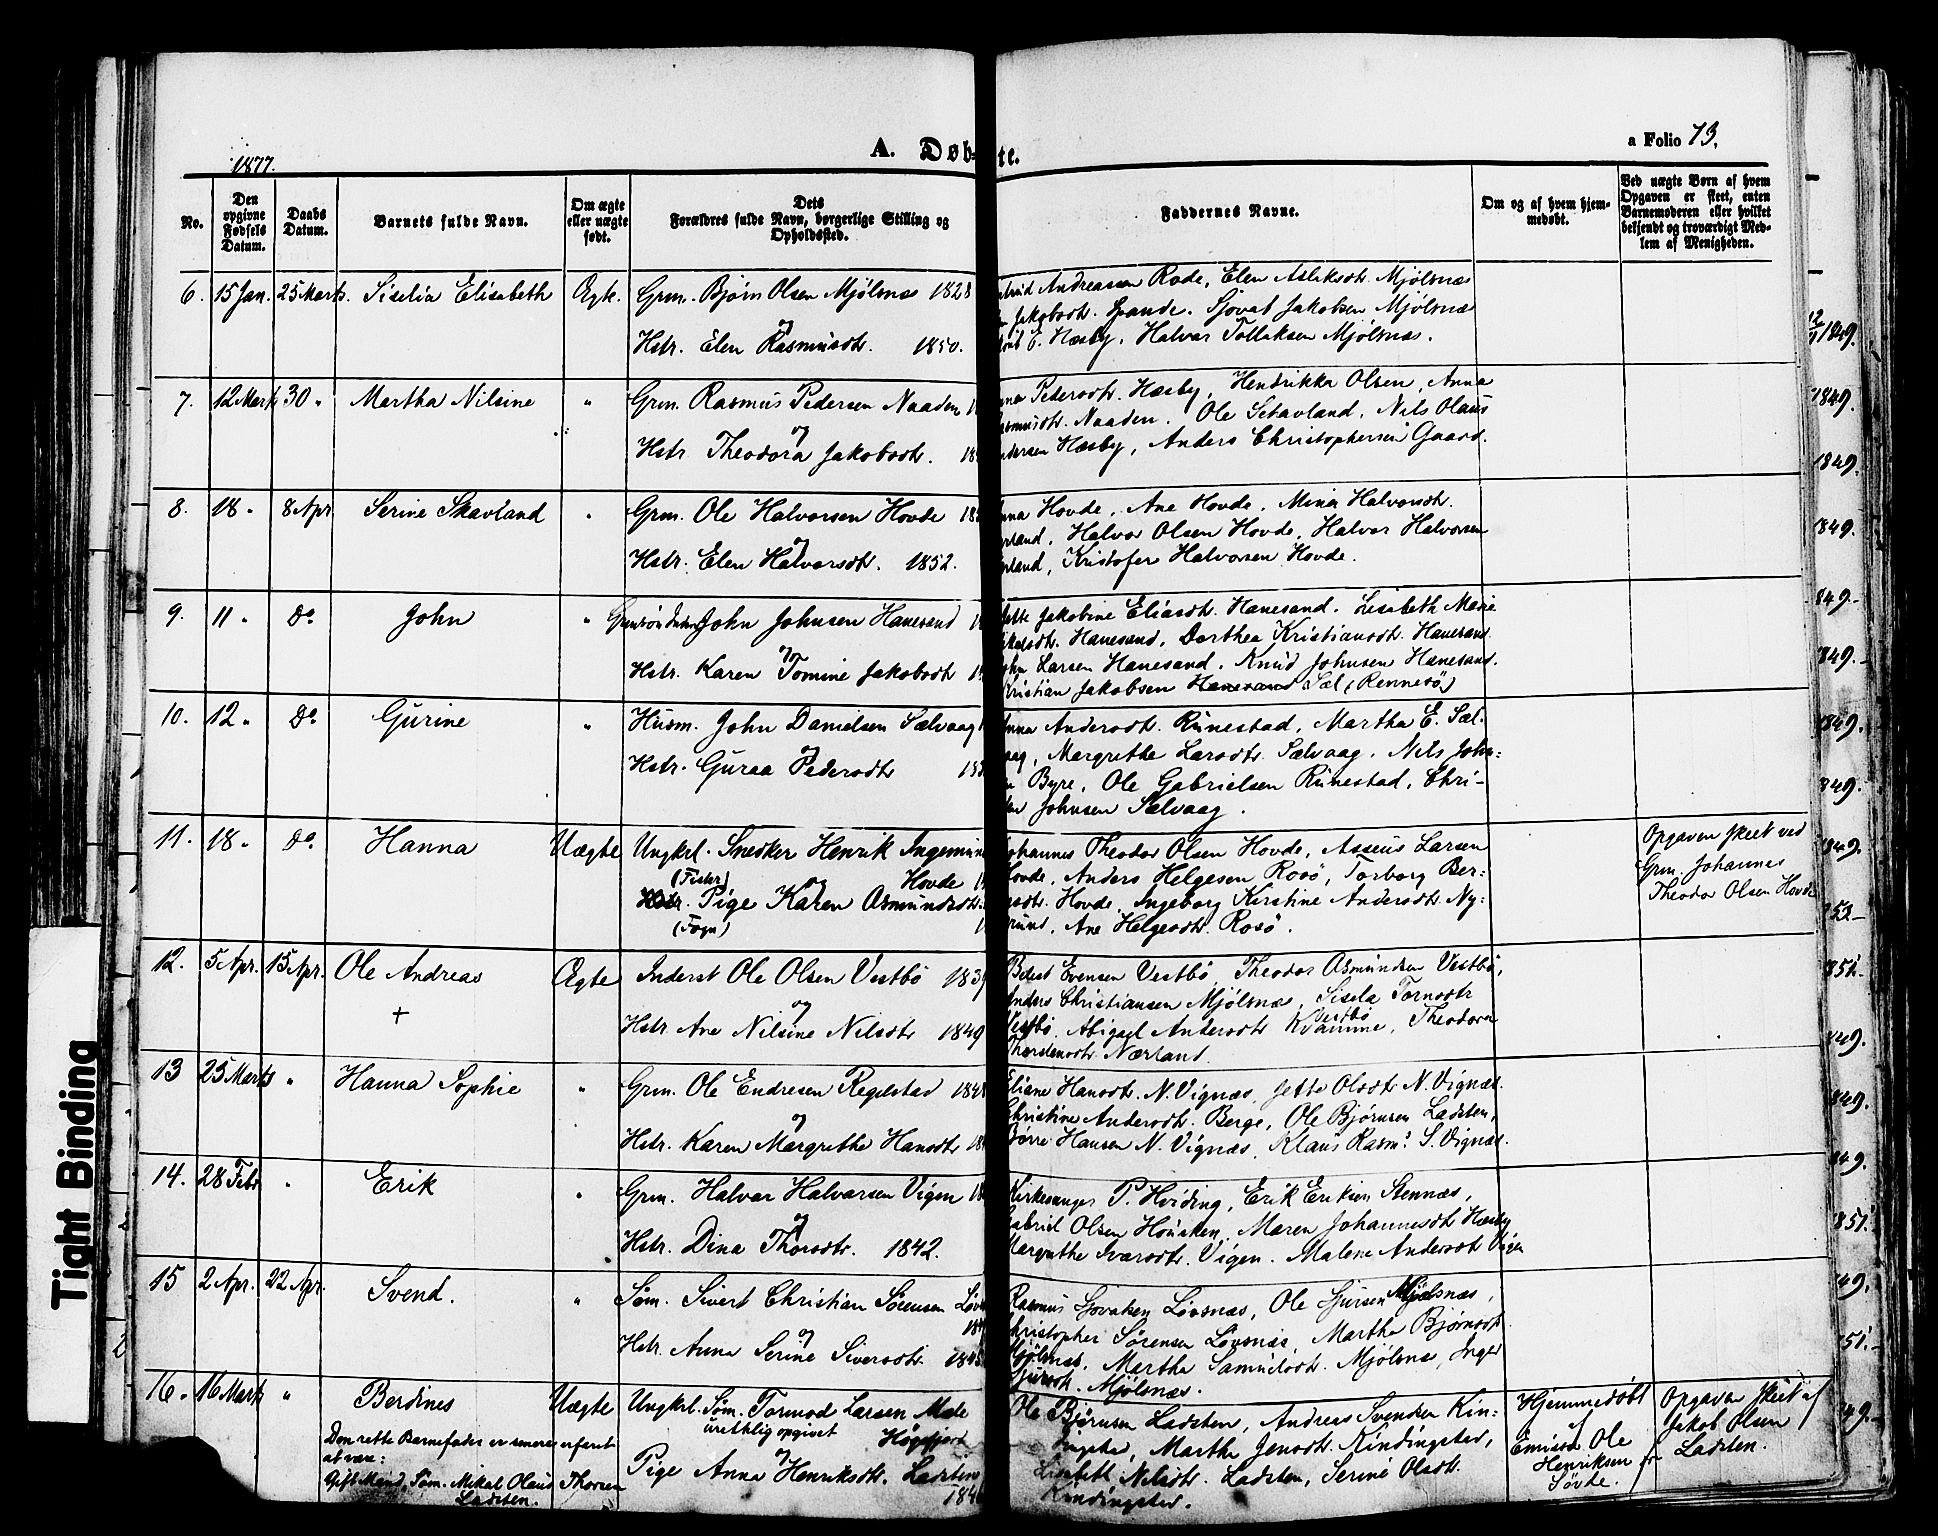 1877.
A. Døb- te.
a Folio 73.
No.
Den opgivne Fødsels Datum.
Daabs Datum.
Barnets fulde Navn.
Om ægte eller uægte født.
Dets Forældres fulde Navn, borgerlige Stilling og Opholdssted.
Faddernes Navne.
Om og af hvem hjemmedøbt.
Ved uægte Børn af hvem Opgaven er skeet, enten Barnemoderen eller hvilket bekjendt og troværdigt Medlem af Menigheden.
6. 15 Jan. 25 Marts. Siselia Elisabeth Ægte. Grm. Bjørn Olsen Mjølsnæs 1828
og
Hstr. Elen Rasmusdtr. 1850.
Andreassen Rode, Elen Aslaksdtr. Mjølsnæs
Jakobsdtr. Spande. Sjovat Jakobsen Mjølsnæs
E. Hæsby, Halvar Tollaksen Mjølsnæs.
7. 12 Marts 30 " Martha Nilsine " Grm. Rasmus Pedersen Naaden
og
Hstr. Theodora Jakobsdtr.
Pedersdtr. Hæsby, Hendrikka Olsen, Anna
Naaden. Ole Schavland, Nils Olaus
Hæsby, Anders Christophersen Gaard.
8. 18 " 8 Apr. Serine Skavland " Grm. Ole Halvorsen Hovde
og
Hstr. Elen Halvorsdtr. 1852.
Hovde, Ane Hovde, Mina Halvorsdtr.
Halvor Olsen Hovde, Halvor Halvorsen
Kristofer Halvorsen Hovde.
9. 11 " Do John " John Johnsen Hanesand
og
Hstr. Karen Tomine Jakobsdtr
Jakobine Eliasdtr. Hanesand. Lisabeth Marie
Hanesand, Dorthea Kristiansdtr. Hanesand
Larsen Hanesand. Knud Johnsen Hanesand.
Kristian Jakobsen Hanesand Sæl (Rennesö)
10. 12 " Do Gurine " Husm. John Danielsen Sælvaag
og
Hstr. Guraa Pedersdtr
Andersdtr. Runestad, Martha E. Sæl-
Margrethe Larsdtr. Sælvaag. Nils John-
Byre, Ole Gabrielsen Runestad, Chri-
Johnsen Sælvaag.
11. 18 " Do Hanna Uægte Ungkrl. Snedker Henrik Ingemund
(Fister) og Hovde
Pige Karen Osmundsdtr.
(Fogn)
Johannes Theodor Olsen Hovde, Asseus Larsen
Hovde, Anders Helgesen Rosö, Torborg Ber-
Hovde, Ingeborg Kirstine Andersdtr. Ny-
Ane Helgesdtr. Rosö.
Opgaven skeet ved
Grm. Johannes
Theodor Olsen Hovde
12. 5 Apr. 15 Apr. Ole Andreas Ægte Inderst Ole Olsen Vestbö 1839
+
og
Hstr. Ane Nilsine Nilsdtr 1849
Evensen Vestbö, Theodor Osmundsen Vestbö,
Anders Christiansen Mjølsnæs, Sisela Tornsdtr
Vestbö
Vestbö, Abigael Andersdtr. Kvamme, Theodora
Thorstensdtr. Nærland.
13 25 Marts " Hanna Sophie " Grm. Ole Endresen Regelstad 1848
og
Hstr. Karen Margrethe Hansdtr
Eliane Hansdtr. N. Vignæs. Jette Olsdtr N. Vignæs.
Christine Andersdtr. Berge, Ole Bjørnsen Ladsten,
Børre Hansen N. Vignæs, Klaus Rasm. S. Vignæs.
14. 28 Febr " Erik " Grm. Halvar Halvarsen Vigen
og
Hstr. Dina Thorsdtr. 1842.
Kirkesanger P. Hviding, Erik Eriksen Stennæs,
Gabriel Olsen Housken, Maren Johannesdtr Hæsby
Margrethe Ivarsdtr. Vigen. Malene Andersdtr Vigen
15 2 Apr. 22 Apr. Svend. " Søm. Sivert Christian Sørensen
og
Hstr. Anna Serine Siversdtr. 1845
Rasmus Sjovatsen Løvsnæs, Ole Sjursen Mjølsnæs,
Christopher Sørensen Løvsnæs, Martha Bjørnsdtr.
Mjølsnæs. Martha Samuelsdtr. Mjølsnæs, Inger
Sjursdtr. Mjølsnæs.
16. 16 Marts " Berdines Uægte Ungkrl. Søm. Tormod Larsen Mæle
urettelig opgivet Høgsfjord
og
Pige Anna Henriksdtr. Ladsten
Den rette Barnefader er senere erfaret
at være:
Gift Mand, Søm. Mikal Olaus Thorsen
Ladsten.
Ole Bjørnsen Ladsten, Andreas Svendsen Kin-
dingstad, Martha Jensdtr. Kindingstad,
Lisabeth Nilsdtr. Ladsten, Serine Olsdtr.
Kindingstad.
Hjemmedøbt
af
Emissær Ole
Henriksen
Søvde.
Opgaven skeet af
Jakob Olsen
Ladsten.
1849.
1849.
1849.
849.
849.
849.
849.
849.
849.
853
851.
849.
849.
849.
851.
849.
851.
849.
Tight Binding